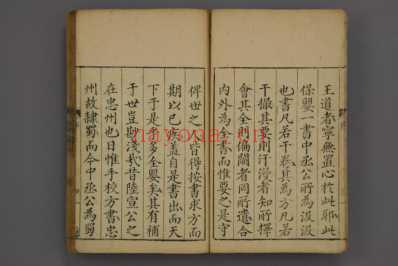 王道者寧無置心於此耶此
保嬰一書中丞公所為汲汲
也書凡若干卷其為方凡若
干撮其要則汗漫者知所擇
會其全則偏闕者同所遺合
內外為全書而惟要之是守
俾世之人皆得按書求方而
期以已疾蓋自是書出而天
下于是無全嬰矣其有補
于世豈淺哉昔陸宣公之
在忠州也日惟手校方書忠
州故隸蜀而今中丞公為蜀
nayona.cn